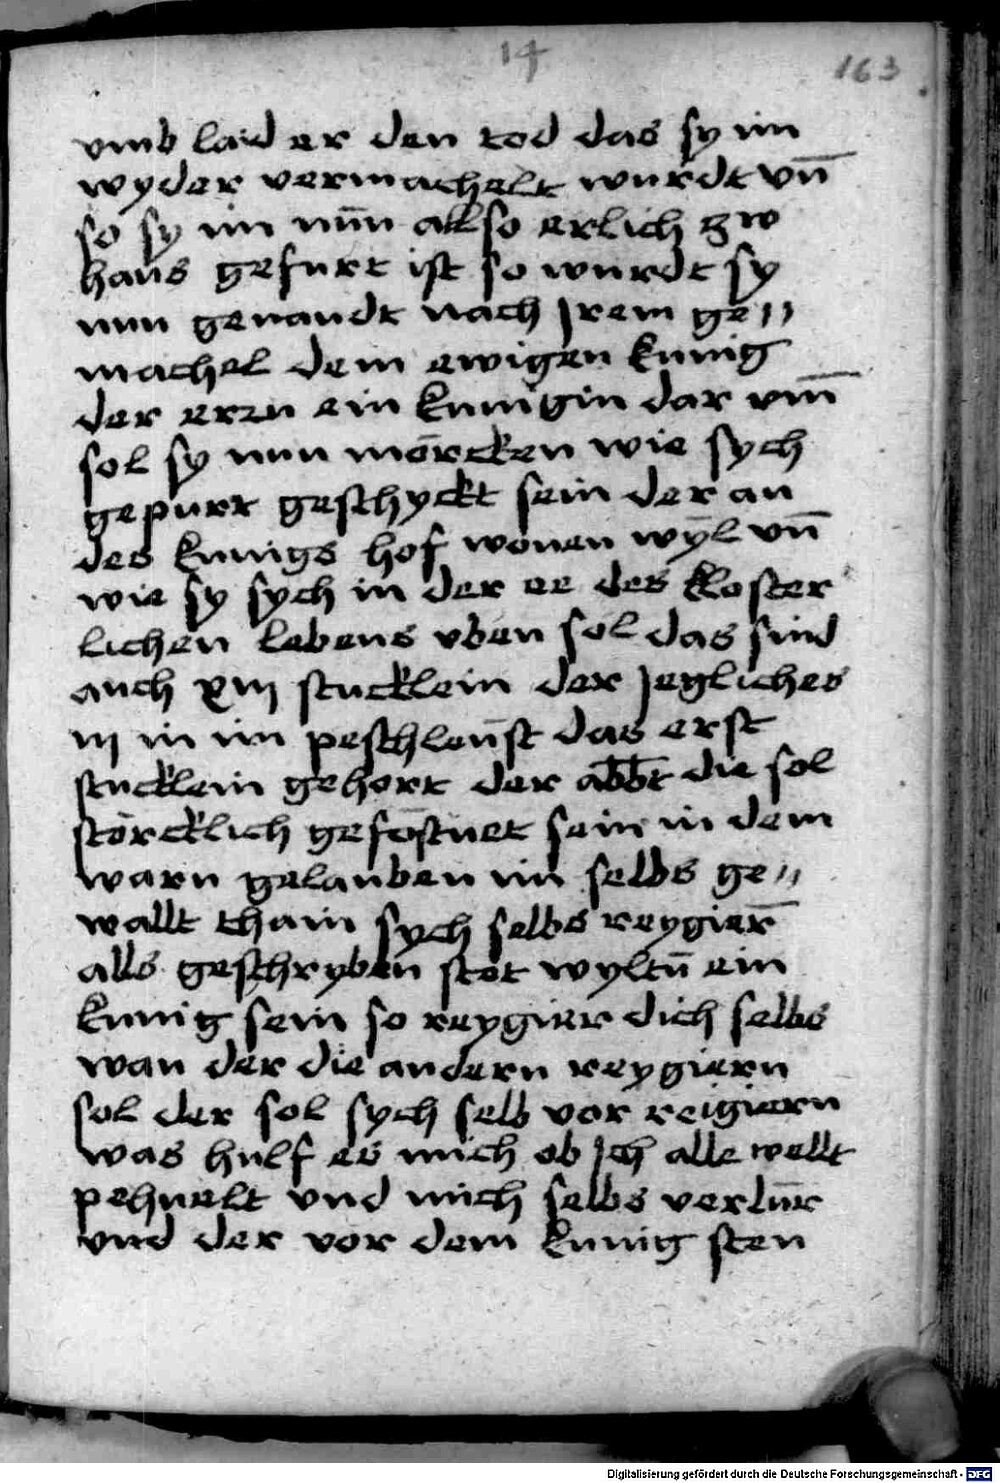 14
163
vmb laid er den tod das sy im
wyder vermachelt wurdt vn̄
so sy im nūn allso erlich zw
haus gefurt ist so wurdt sy
nun genandt nach jrem ge〃
machel dem ewigen kunig
der ern ein kunigin dar vm̄
sol sy nun mörcken wie sych
gepurt geschyckt sein der an
des kunigs hof wonen wyl vn̄
wie sy sych in der ee des kloster
lichen lebens vben sol das sind
auch xiij stucklein der jegliches
iij in im peschleūst das erst
stucklein gehort der abb̄t die sol
störcklich geföstnet sein in dem
warn gelauben im selbs ge〃
wallt thain sych selbs reygier̄
alls geschryben stet wyltū ein
kunig sein so reygier dich selbs
wan der die andern reygiern
sol der sol sych selb vor reigiern
was hulf es mich ob jch alle wellt
pehuelt vnd mich selbs verlūr
vnd der vor dem kunig sten
Digitalisierung gefördert durch die Deutsche Forschungsgemeinschaft - DFG